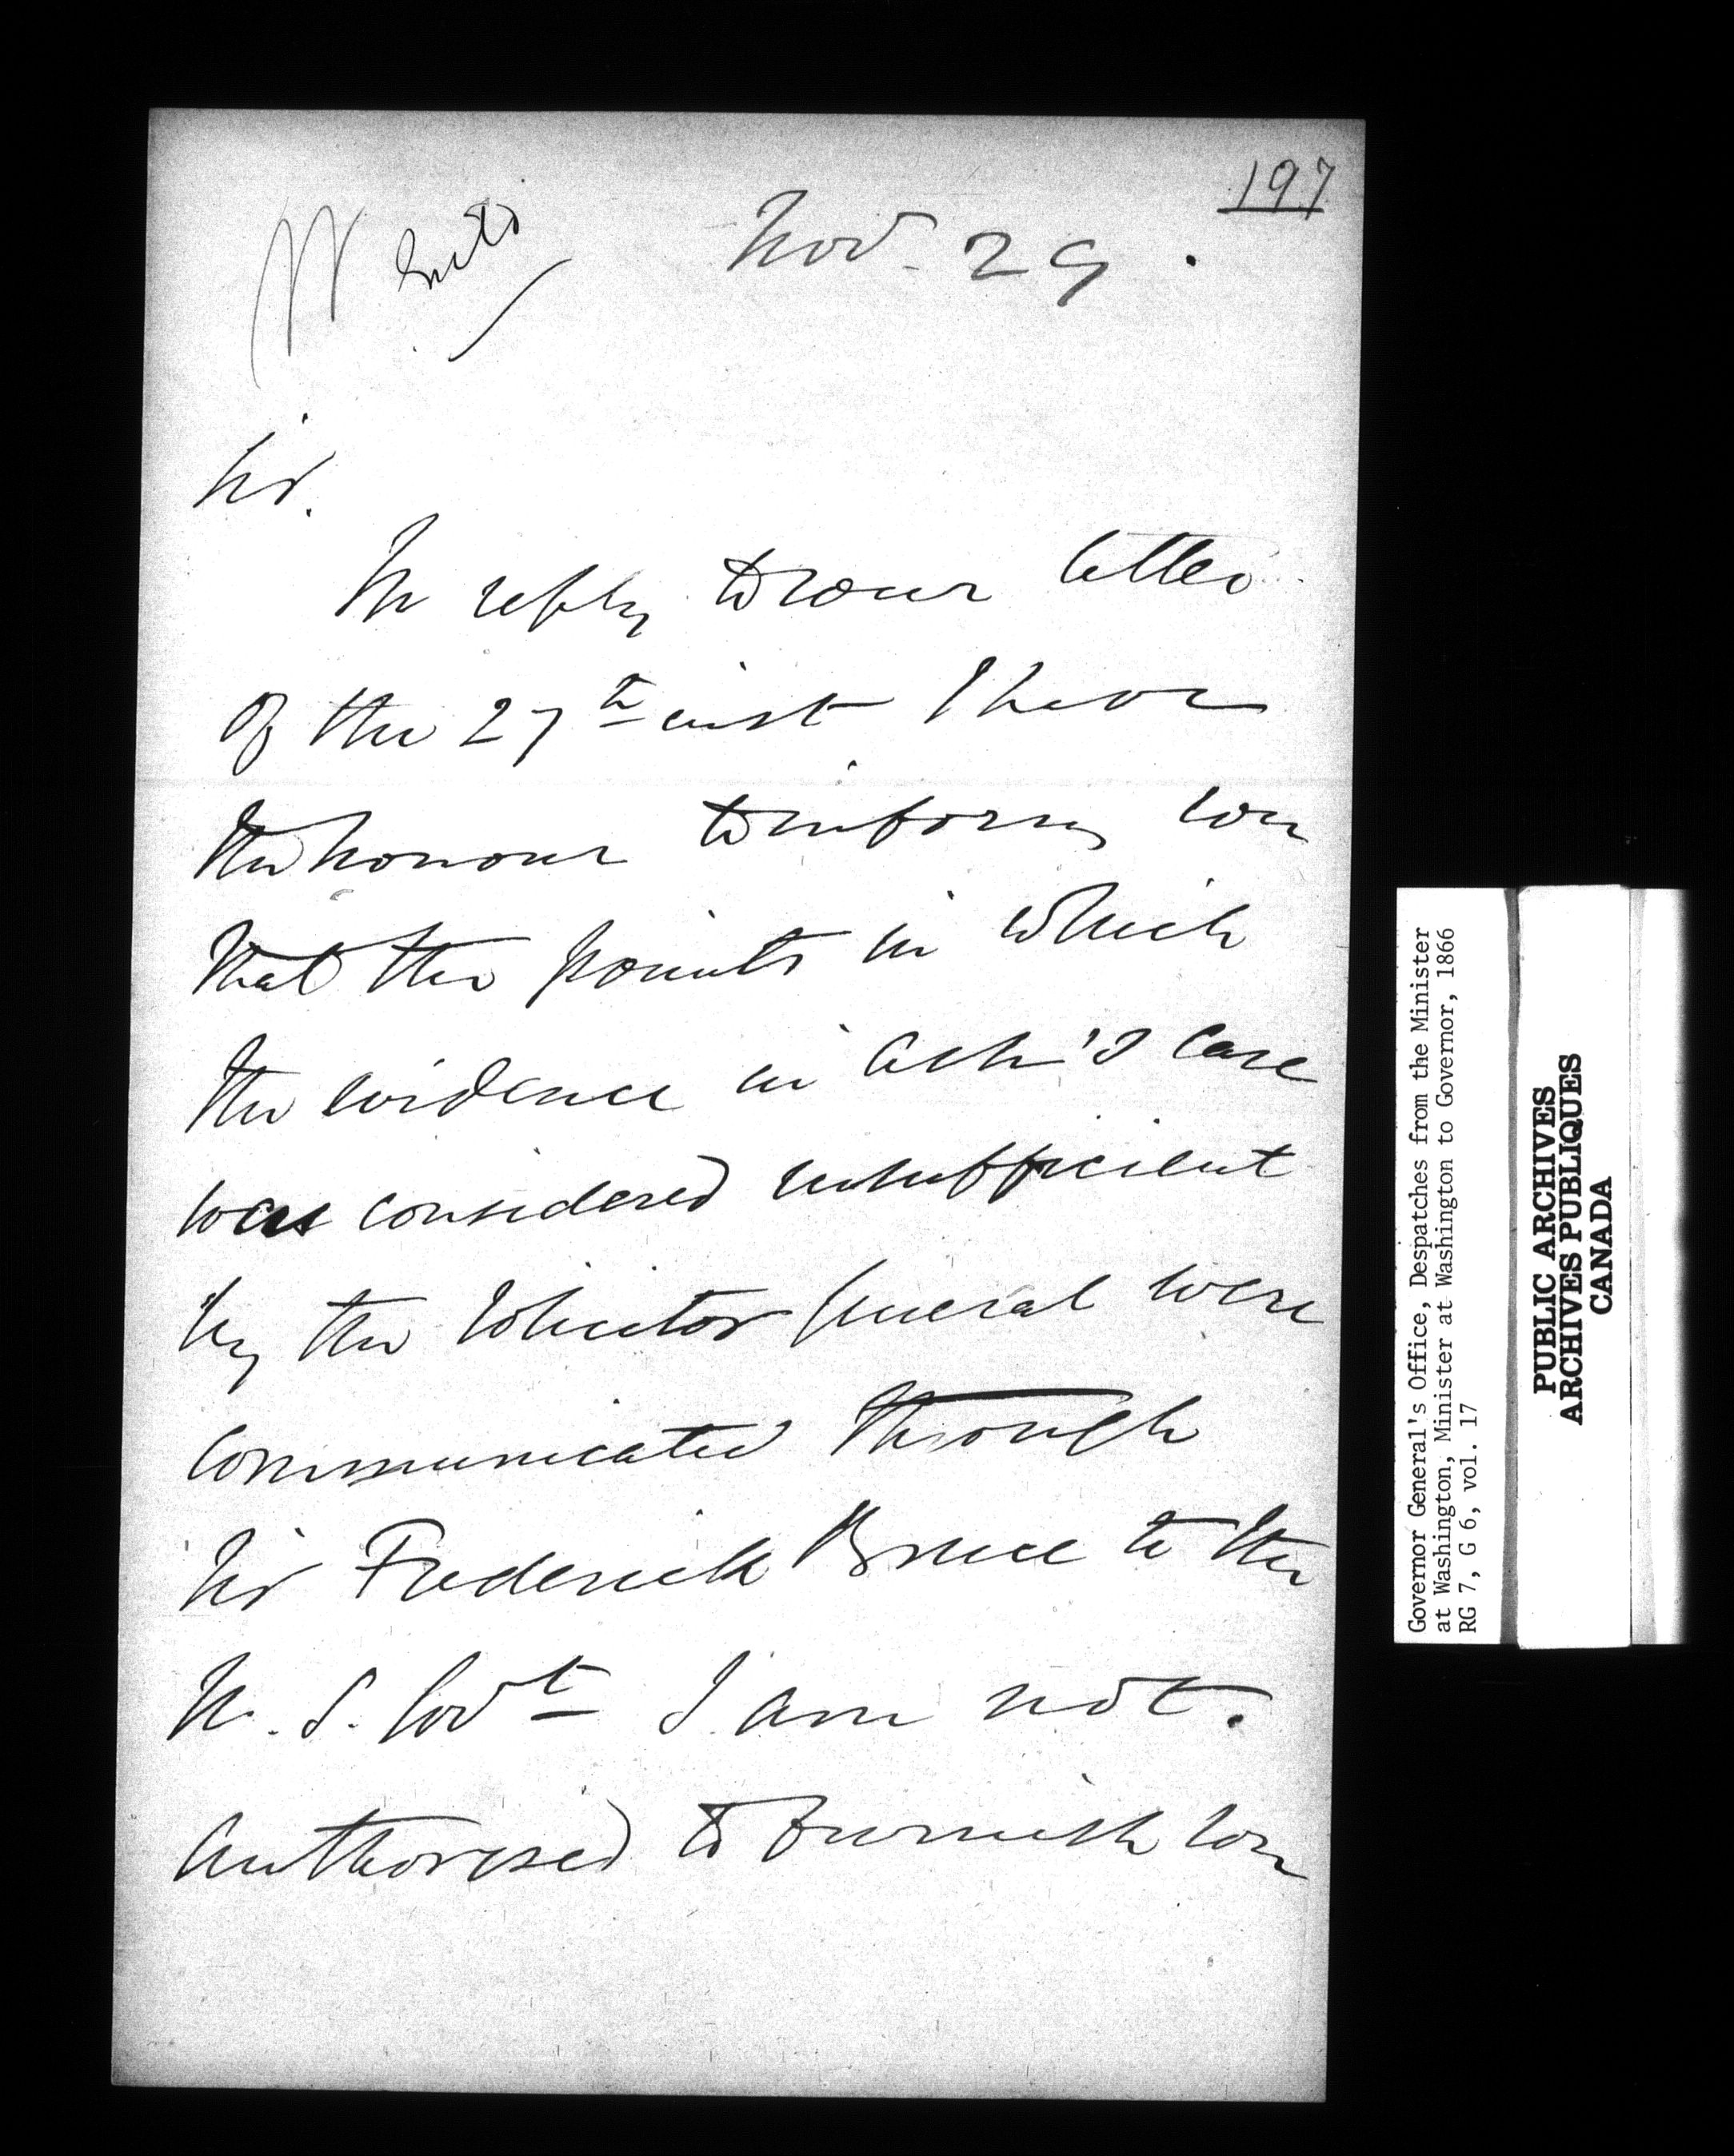 197
Nov. 29.
Sir.
In reply to your letter
of the 27th inst I have
the honour to inform you
that the points in which
the evidence in Ash's case
was considered insufficient
by the Solicitor General were
communicated through
Sir Frederick Bruce to the
U.S. Govt I am not.
authorised to furnish you
Governor General's Office, Despatches from the Minister
at Washington, Minister at Washington to Governor, 1866
RG 7, G 6, vol. 17
PUBLIC ARCHIVES
ARCHIVES PUBLIQUES
CANADA